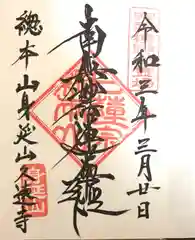 令和三年三月廿日
南無妙法蓮華経
総本山身延山久遠寺